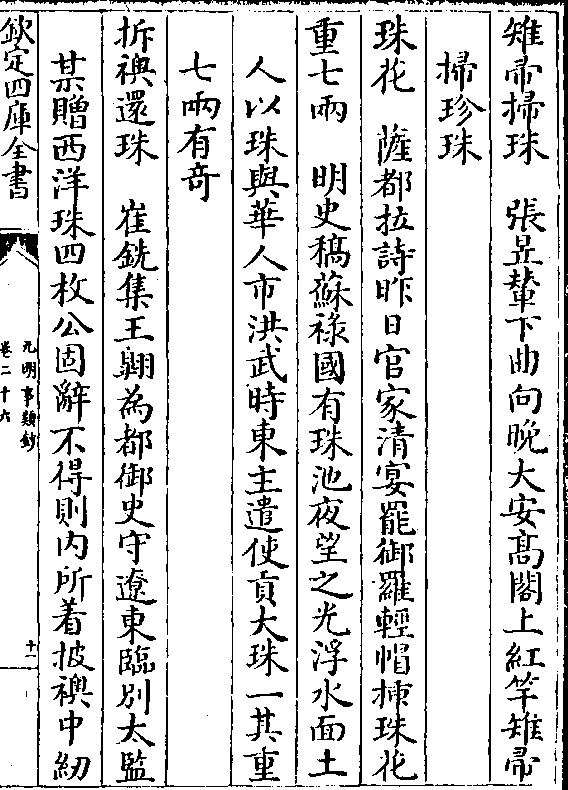 雉帚掃珠　張昱輦下曲向晚大安髙閣上紅竿雉帚
掃珍珠
珠花　薩都拉詩昨日官家清宴罷御羅輕帽插珠花
重七兩　明史稿蘇祿國有珠池夜望之光浮水面土
人以珠與華人市洪武時東主遣使貢大珠一其重
七兩有奇
拆襖還珠　崔銑集王翺為都御史守遼東臨別太監
某贈西洋珠四枚公固辭不得則内所着披襖中紉
欽定四庫全書
元明事類鈔
卷二十六
十一